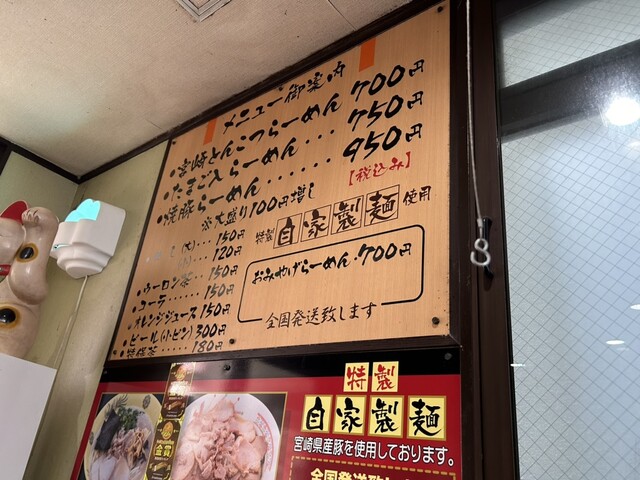 メニュー御案内
・宮崎とんこつらーめん 700円
・たまご入らーめん・・・750円
・焼豚らーめん・・・・・・950円
※大盛り100円増し
【税込み】
し(大)・・・150円
120円
・ウーロン茶・・・150円
・コーラ・・・・・・150円
・オレンジジュース150円
・ビール(小ビン)300円
・特保茶・・・・・180円
特製 自家製麺 使用
おみやげらーめん・700円
全国発送致します
特製
自家製麺
宮崎県産豚を使用しております。
全国発送致し